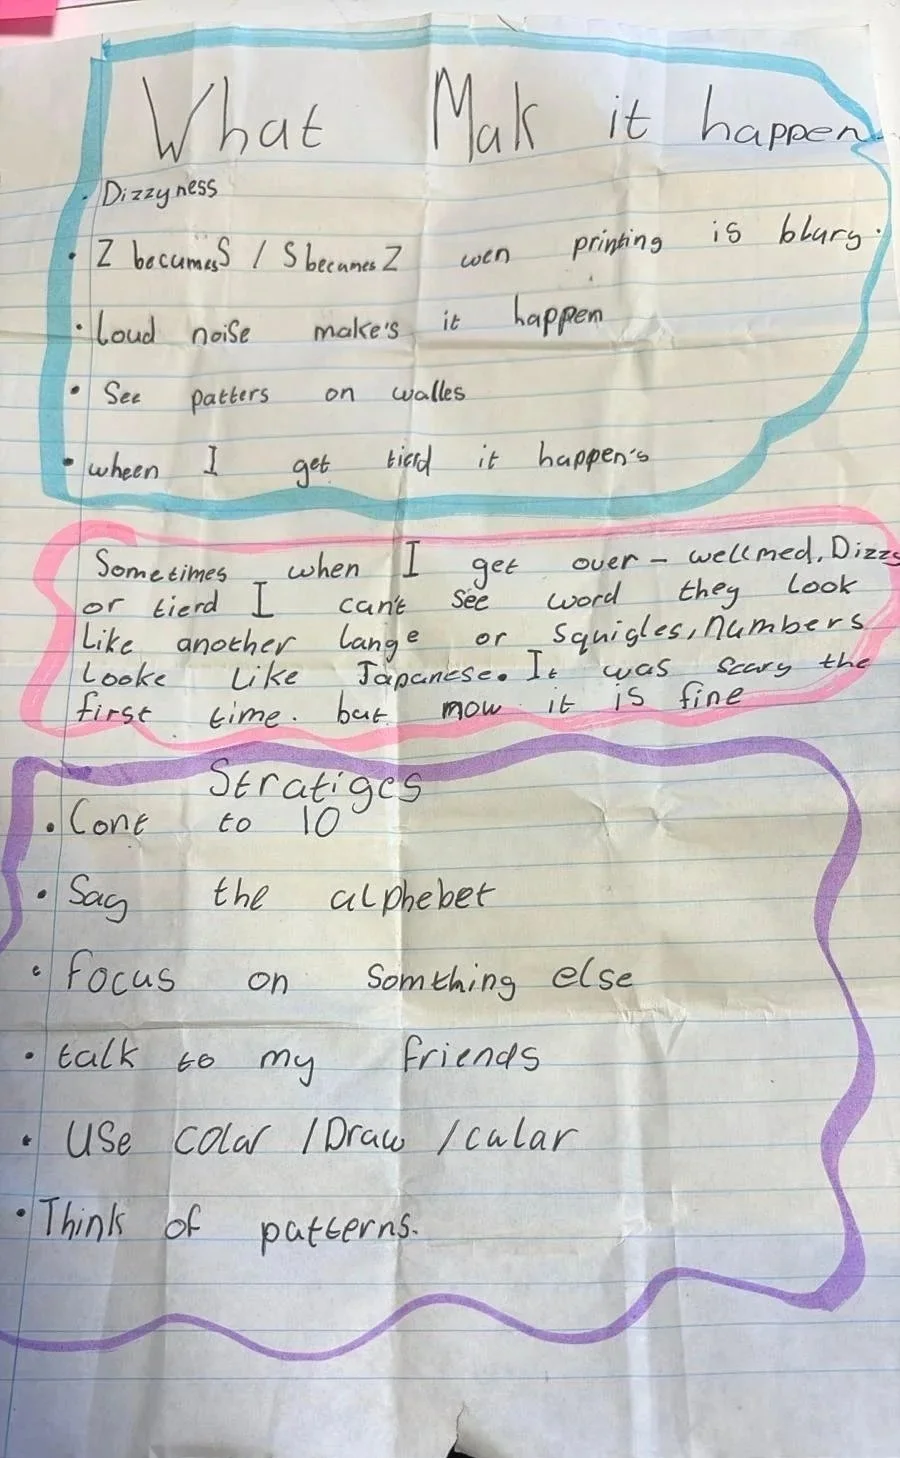 What Mak it happen
• Dizzyness
• Z becumesS / S becumes Z wen printing is blury.
• Loud noise make's it happen
• See patters on walles
• wheen I get tierd it happen's
Sometimes when I get over - wellmed, Dizzy
or tierd I can't see word they look
Like another lange or squigles, numbers
Looke Like Japanese. It was scary the
first time. but mow it is fine
Stratiges
• Cont to 10
• Say the alphebet
• focus on somthing else
• talk to my friends
• USe colar / Draw / cular
• Think of patterns.